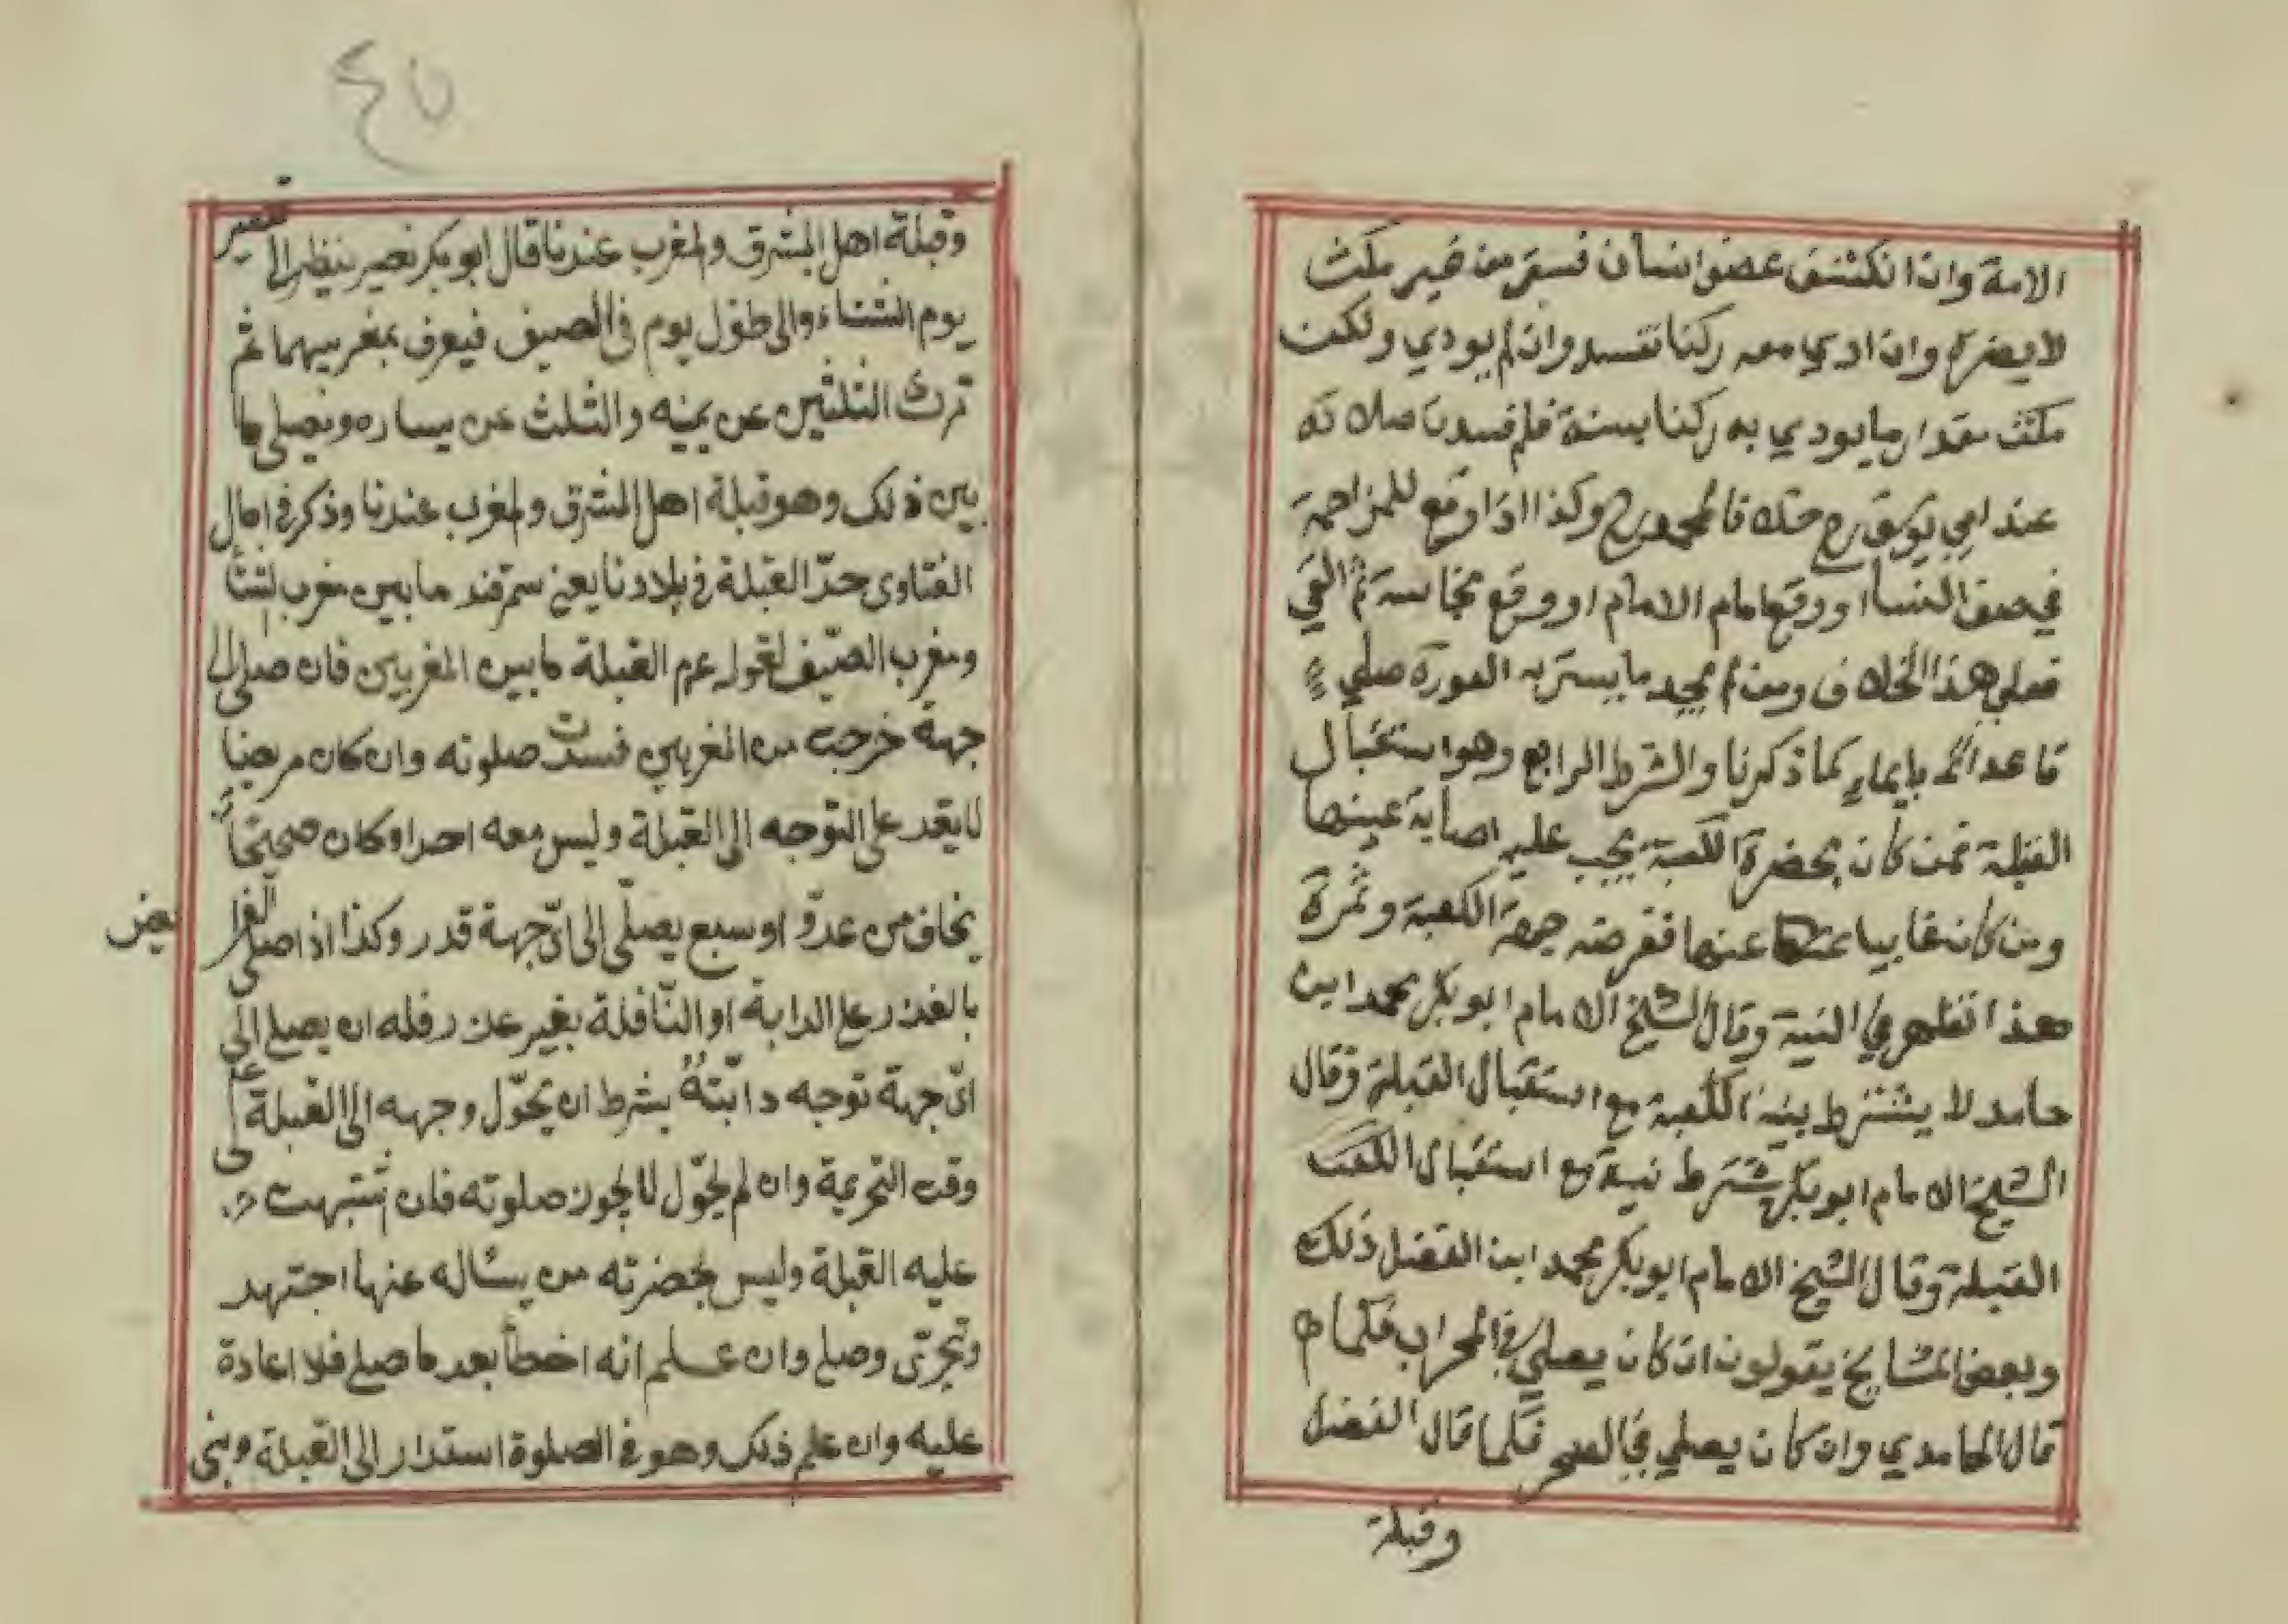 الامة وان انكشف عضو انسان فستر من غير مكث
لا يضره وان ادي معه ركنا تفسد وان لم يودي ولكن
مكث مقدار ما يودي به ركنا بسنة فلم فسدت صلاته
عند ابي يوسف رح خلافا لمحمد رح وكذا اذا وقع للمزاحمة
في صف النساء او وقع امام الامام او وقع نجاسة ثم القي
فعلي هذا الخلاف ومن لم يجد ما يستر به العورة صلي
قاعدا بايماء كما ذكرنا والشرط الرابع وهو استقبال
القبلة فمن كان بحضرة الكعبة يجب عليه اصابة عينها
ومن كان غايبا عنها ففرضه جهة الكعبة وثمرة
هذا تظهر في النية وقال الشيخ الامام ابو بكر محمد ابن
حامد لا يشترط نية الكعبة مع استقبال القبلة وقال
الشيخ الامام ابو بكر يشترط نية مع استقبال الكعبت
القبلة وقال الشيخ الامام ابو بكر محمد ابن الفضل ذلك
وبعض المشايخ يقولون ان كان يصلي في المحراب فكما
قال الحامدي وان كان يصلي في الصحر فكما قال الفضل
وقبلة
٤٥
وقبلة اهل المشرق والمغرب عندنا قال ابو بكر نصير ينظر الى قصير
يوم الشتاء والى طول يوم في الصيف فيعرف بمغربيهما ثم
ترك الثلثين عن يمينه والثلث عن يساره ويصلى ما
بين ذلك وهو قبلة اهل المشرق والمغرب عندنا وذكر في امال
الفتاوى حدّ القبلة في بلادنا يعني سمرقند ما بين مغرب الشتا
ومغرب الصّيف لقوله عم القبلة ما بين المغربين فان صلى الى
جهة خرجت من المغربين فسدت صلوته وان كان مريضا
لا يقدر على التوجه الى القبلة وليس معه احد او كان صحيحًا
يخاف من عدوّ او سبع يصلّى الى اىّ جهة قدر وكذا اذا صلى الفرا
يض
بالعذر على الدابة او النّافلة بغير عذر فله ان يصلي الى
اىّ جهة توجه دابّتهُ بشرط ان يحوّل وجهه الى القبلة على
وقت التحريمة وان لم يحوّل لا يجوز صلوته فان اشتبهت
عليه القبلة وليس بحضرته من يسأله عنها اجتهد
وتحرّى وصلى وان علم انه اخطأ بعد ما صلى فلا اعادة
عليه وان علم ذلك وهو في الصلوة استدار الى القبلة وبنى